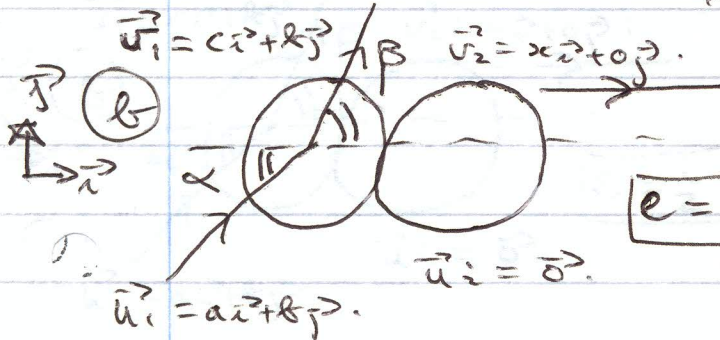 v⃗₁ = ci⃗ + bj⃗
β
v⃗₂ = xi⃗ + 0j⃗.
j⃗
b
i⃗
α
e =
u⃗₂ = 0⃗.
u⃗₁ = ai⃗ + bj⃗.